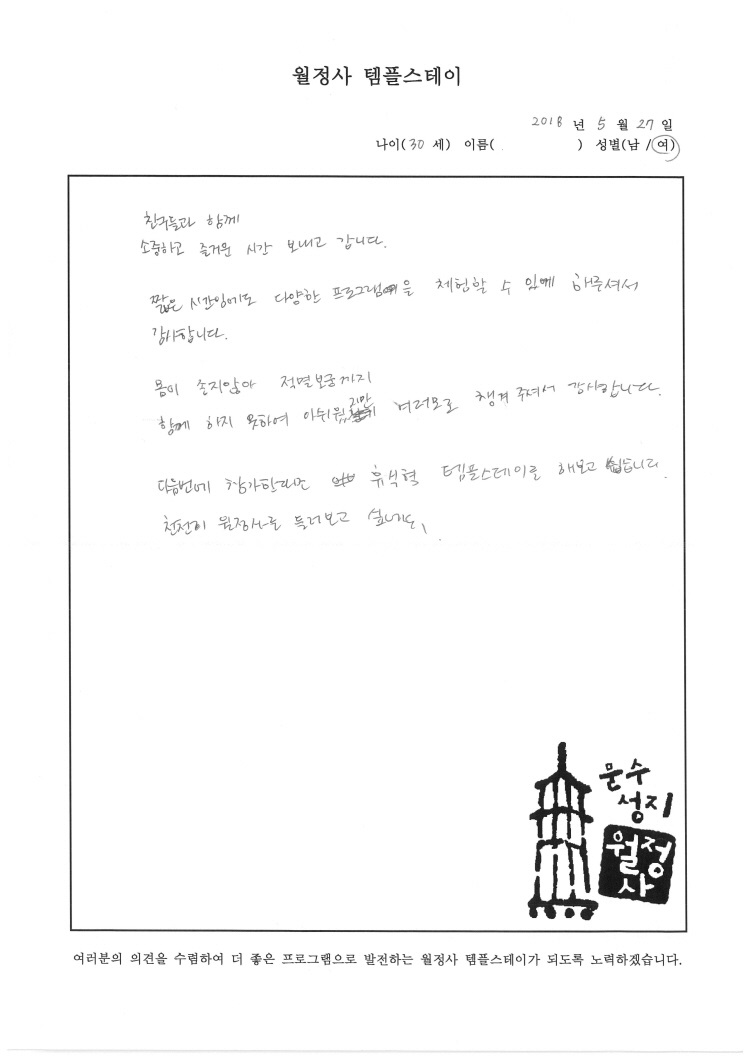 월정사 템플스테이
2018 년 5 월 27 일
나이(30 세) 이름( ) 성별(남 / 여)
친구들과 함께
소중하고 즐거운 시간 보내고 갑니다.
짧은 시간임에도 다양한 프로그램을 체험할 수 있게 해주셔서
감사합니다.
몸이 좋지않아 적멸보궁까지
함께 하지 못하여 아쉬웠지만 여러모로 챙겨 주셔서 감사합니다.
다음번에 참가한다면 휴식형 템플스테이를 해보고 싶습니다.
천천히 월정사를 둘러보고 싶네요.
문수
성지
월정
사
여러분의 의견을 수렴하여 더 좋은 프로그램으로 발전하는 월정사 템플스테이가 되도록 노력하겠습니다.